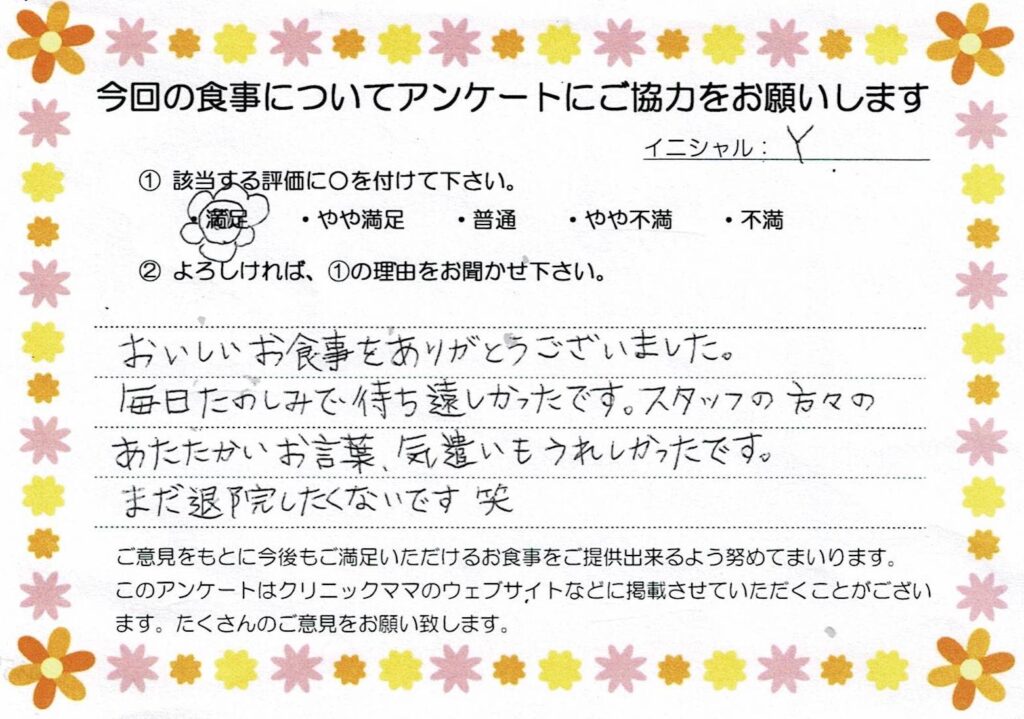 今回の食事についてアンケートにご協力をお願いします
イニシャル: Y
① 該当する評価に○を付けて下さい。
・満足 ・やや満足 ・普通 ・やや不満 ・不満
② よろしければ、①の理由をお聞かせ下さい。
おいしいお食事をありがとうございました。
毎日たのしみで待ち遠しかったです。スタッフの方々の
あたたかいお言葉、気遣いもうれしかったです。
まだ退院したくないです 笑
ご意見をもとに今後もご満足いただけるお食事をご提供出来るよう努めてまいります。
このアンケートはクリニックママのウェブサイトなどに掲載させていただくことがござい
ます。たくさんのご意見をお願い致します。